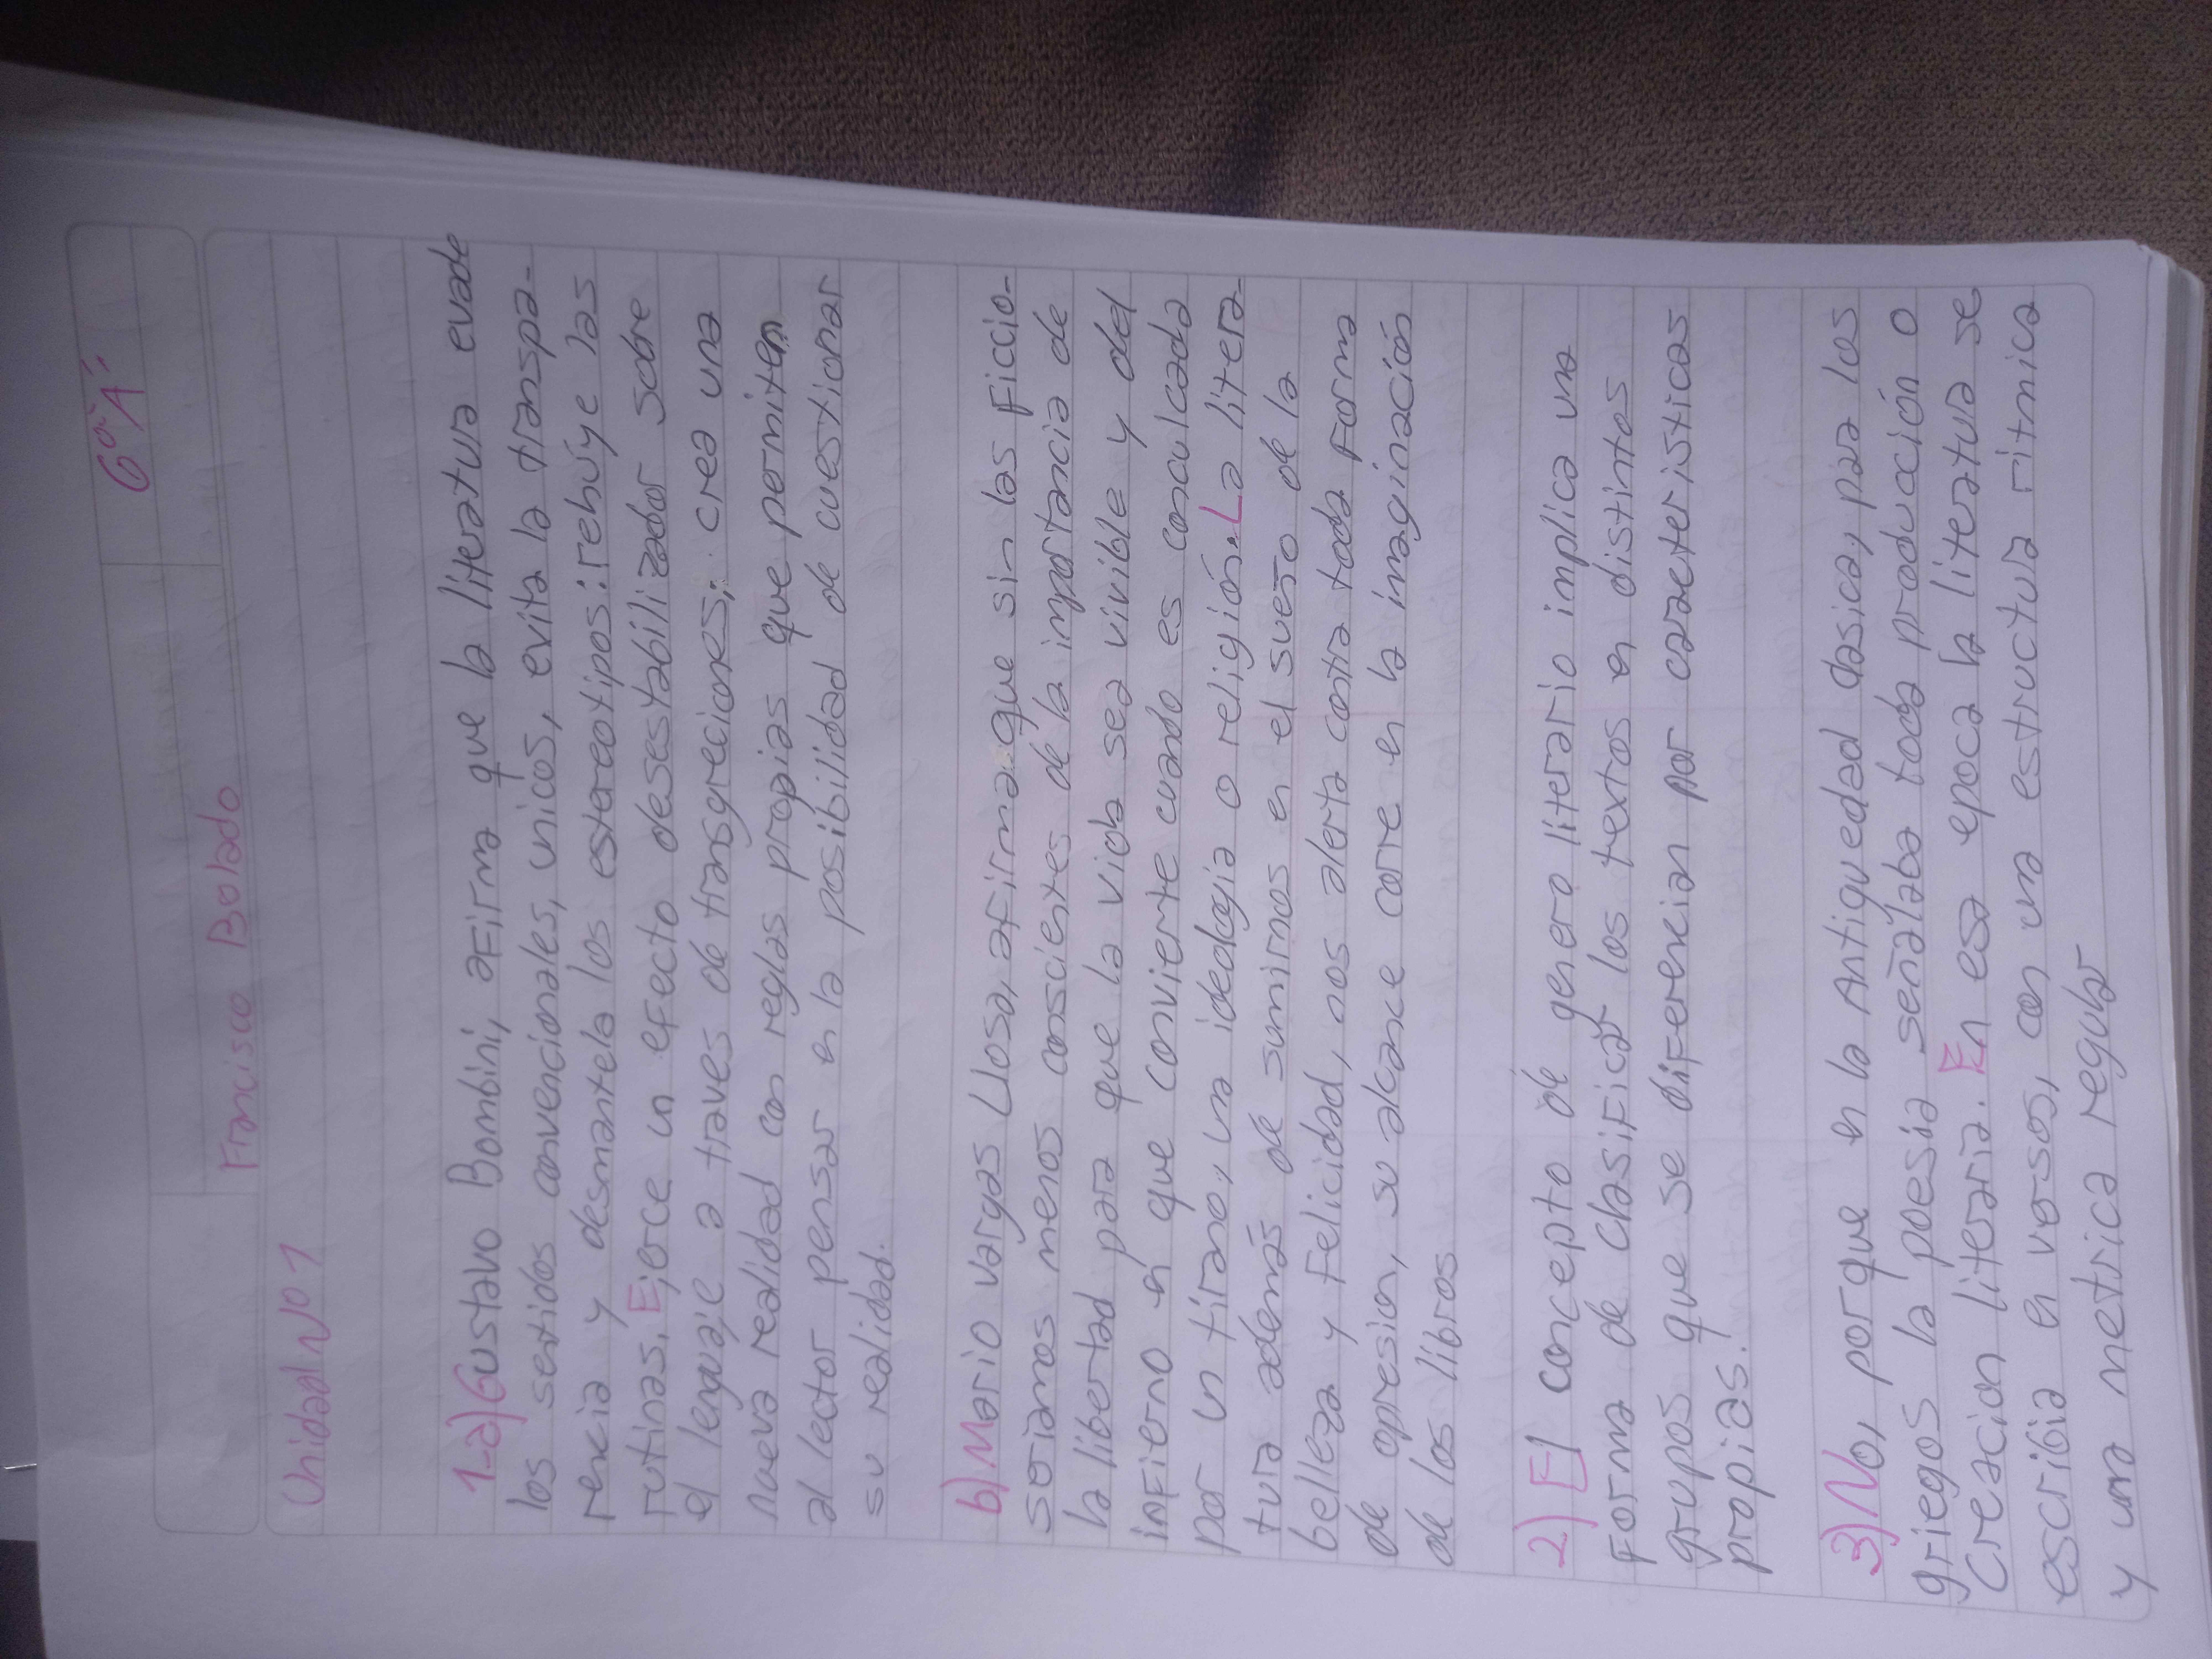 6º"A"
Francisco Bolado
Unidad Nº 1
1-a) Gustavo Bombini, afirma que la literatura evade
los sentidos convencionales, unicos, evita la transpa-
rencia y desmantela los estereotipos: rehúye las
rutinas. Ejerce un efecto desestabilizador sobre
el lenguaje a traves de transgreciones; crea una
nueva realidad con reglas propias que permiten
al lector pensar en la posibilidad de cuestionar
su realidad.
b) Mario vargas Llosa, afirma que sin las ficcio-
seriamos menos conscientes de la importancia de
la libertad para que la vida sea vivible y del
infierno en que convierte cuando es conculcada
por un tirano, una ideologia o religión. La litera-
tura además de sumirnos en el sueño de la
belleza y felicidad, nos alerta contra toda forma
de opresion, su alcance corre en la imaginación
de los libros
2) El concepto de genero literario implica una
forma de clasificar los textos en distintos
grupos que se diferencian por caracteristicas
propias.
3) No, porque en la Antiguedad clasica, para los
griegos la poesia señalaba toda producción o
Creacion literaria. En esa epoca la literatura se
escribia en versos, con una estructura ritmica
y una metrica regular